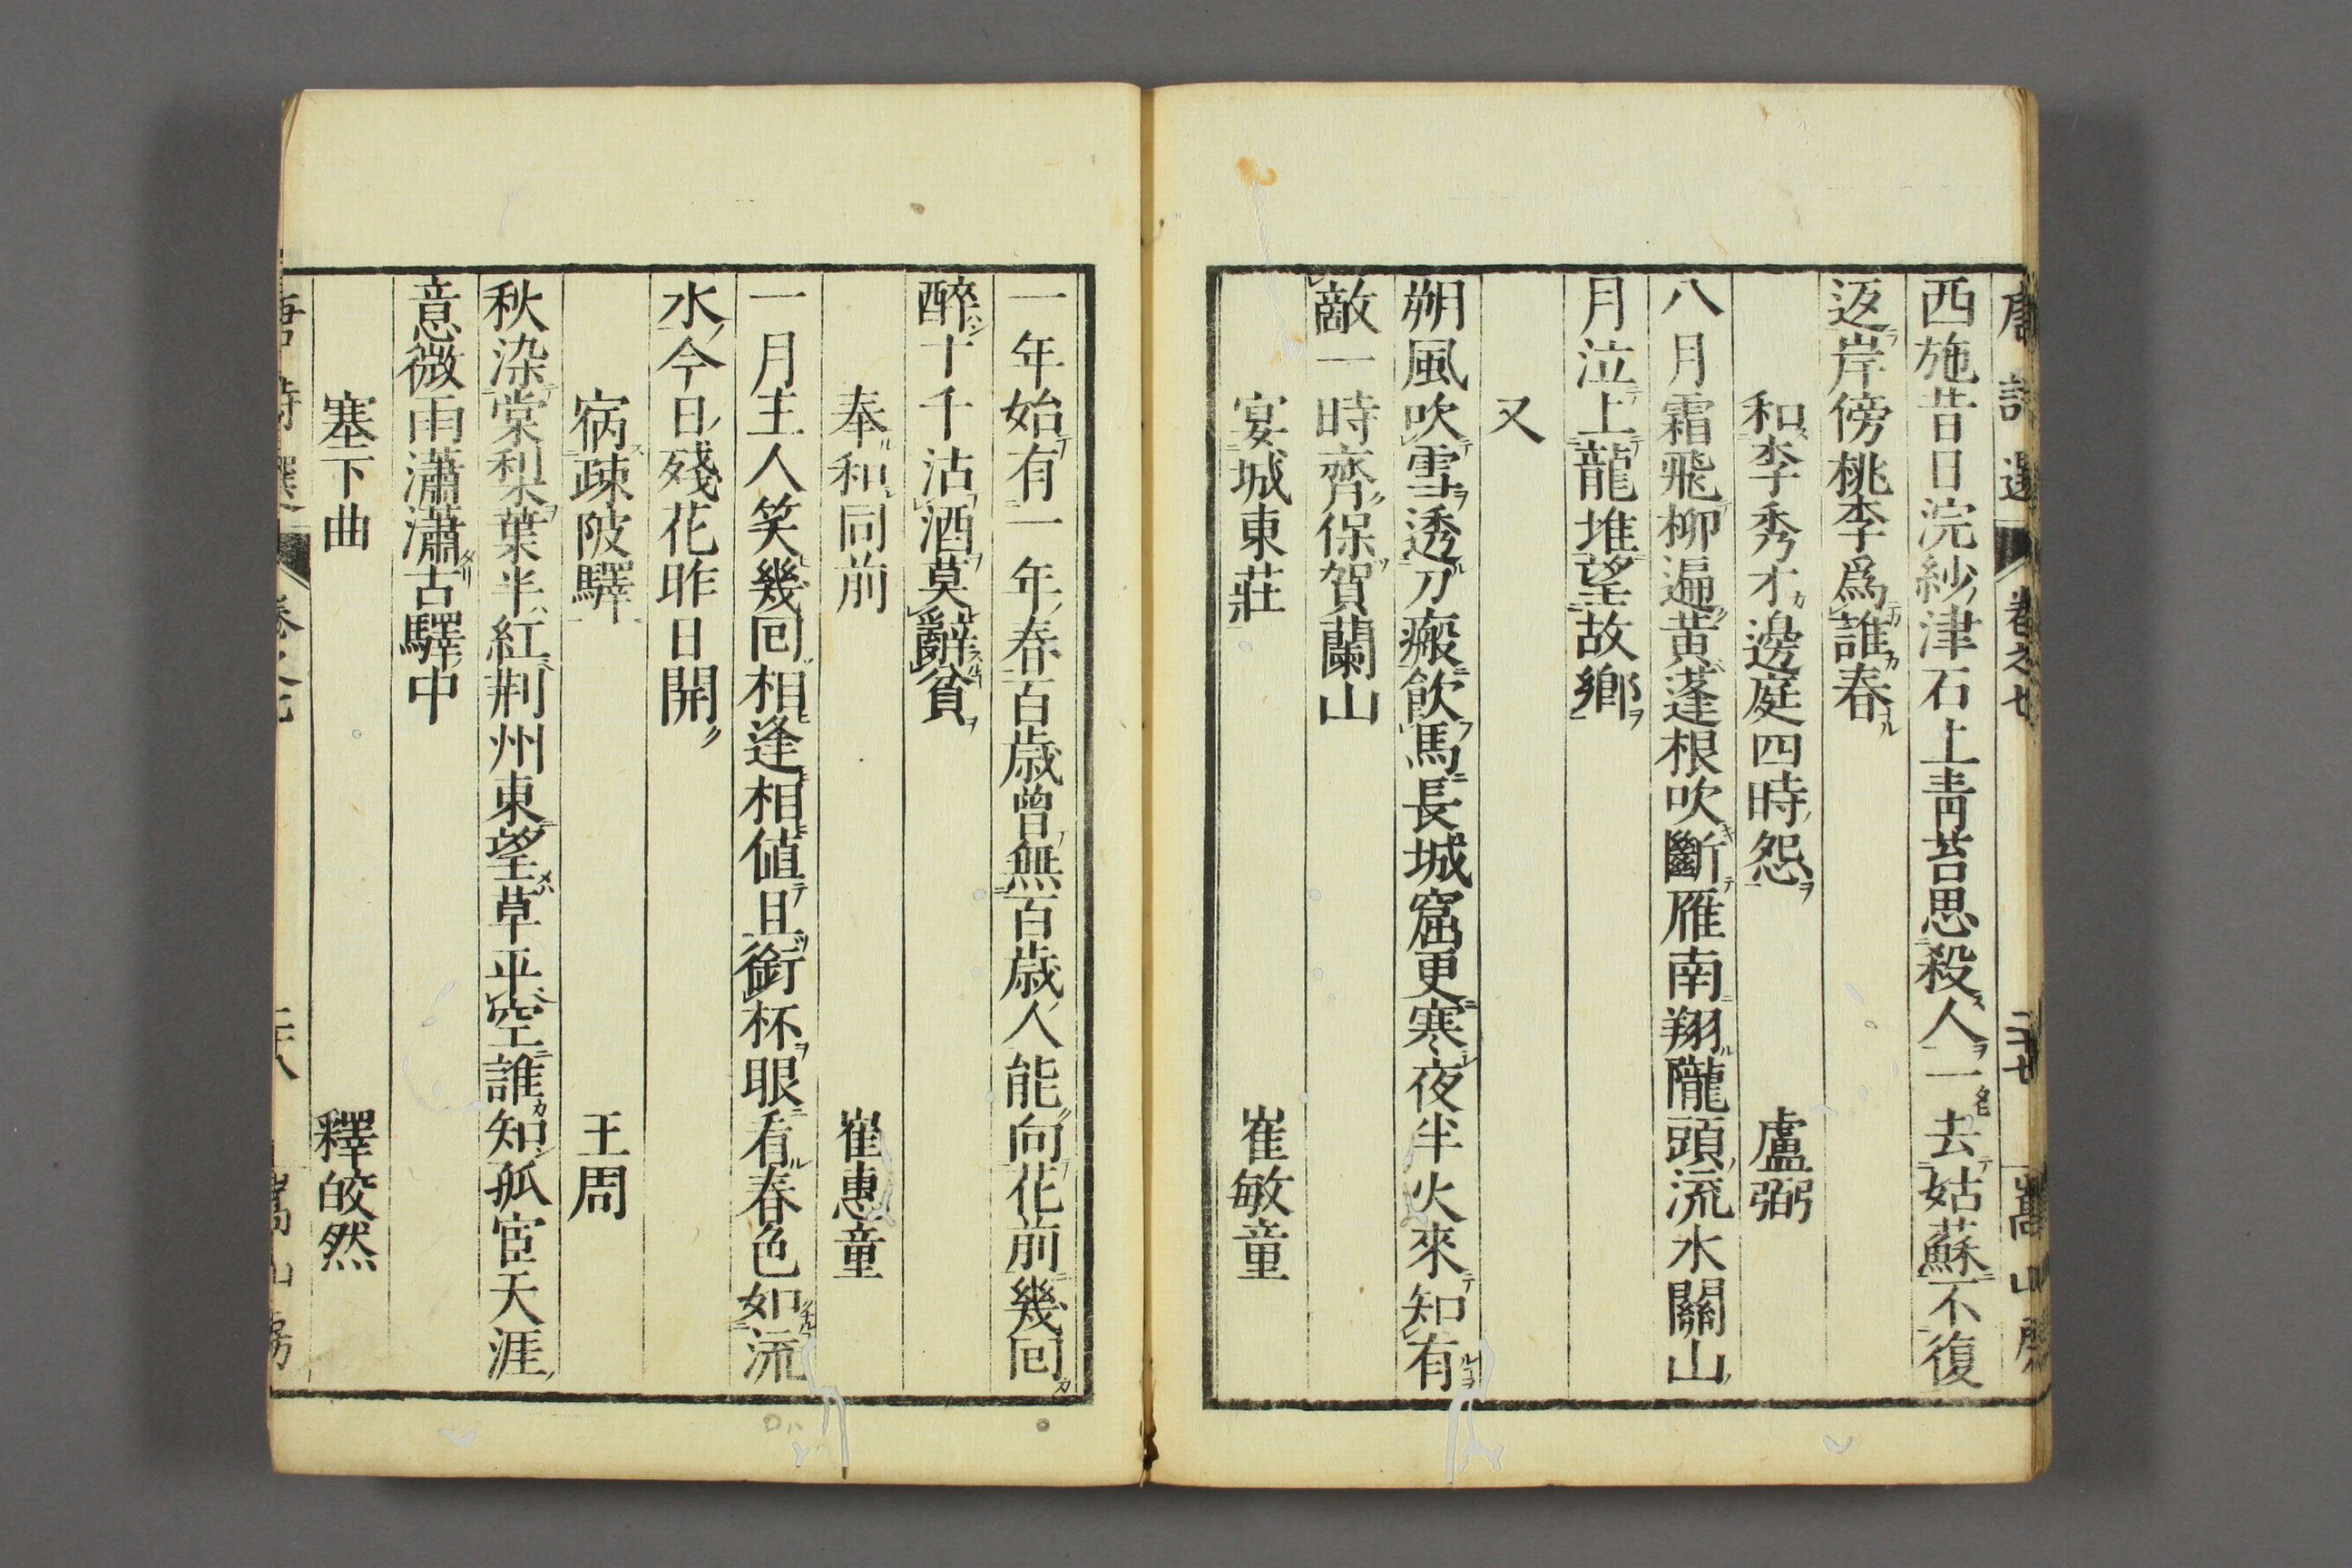 唐詩選 卷之七 二十七 嵩山房
西施昔日浣紗津石上靑苔思殺人一去姑蘇不復
返岸傍桃李爲誰春
和李秀才邊庭四時怨 盧弼
八月霜飛柳遍黃蓬根吹斷雁南翔隴頭流水關山
月泣上龍堆望故鄉
又
朔風吹雪透刀瘢飮馬長城窟更寒夜半火來知有
敵一時齊保賀蘭山
宴城東莊 崔敏童
一年始有一年春百歲曾無百歲人能向花前幾回
醉十千沽酒莫辭貧
奉和同前 崔惠童
一月主人笑幾回相逢相値且銜杯眼看春色如流
水今日殘花昨日開
病疎陂驛 王周
秋染棠梨葉半紅荆州東望草平空誰知孤宦天涯
意微雨瀟瀟古驛中
塞下曲 釋皎然
唐詩選 卷之七 二十八 嵩山房